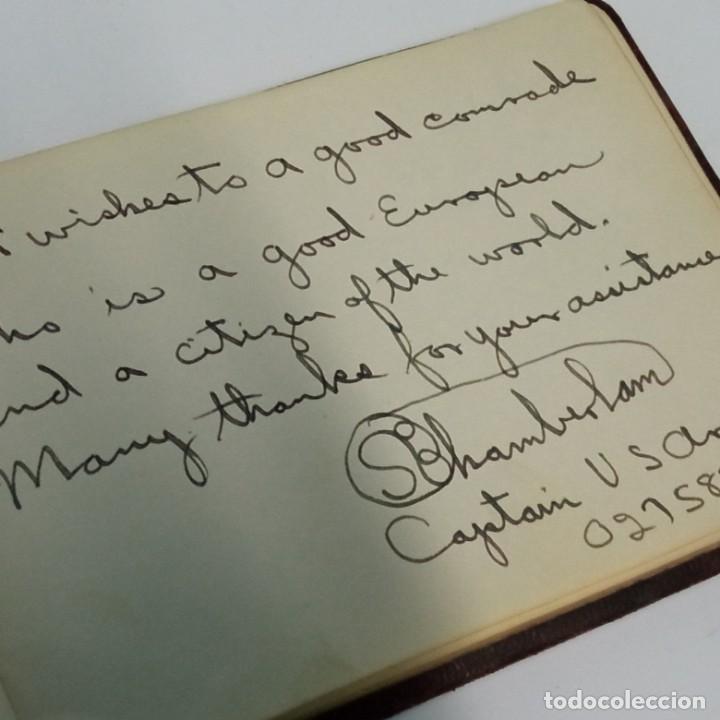 wishes to a good comrade
who is a good European
and a citizen of the world.
Many thanks for your assistance
S Chamberlain
Captain US
02758
todocoleccion